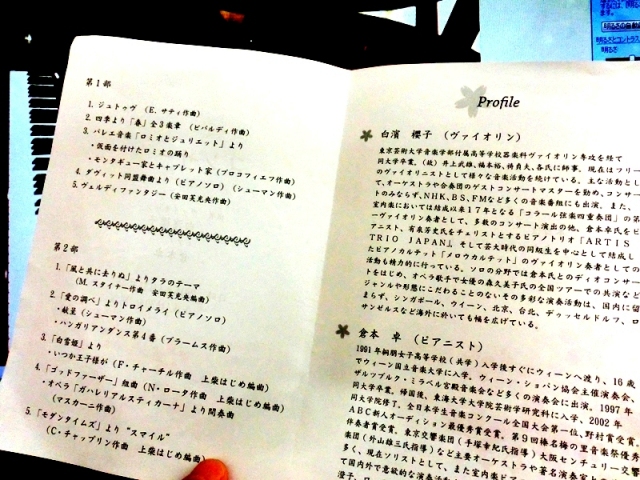 第1部
1. ジュトゥヴ (E. サティ作曲)
2. 四季より「春」全3楽章 (ビバルディ作曲)
3. バレエ音楽「ロミオとジュリエット」より
・仮面を付けたロミオの踊り
・モンタギュー家とキャプレット家 (プロコフィエフ作曲)
4. ダヴィット同盟舞曲より (ピアノソロ) (シューマン作曲)
5. ヴェルディファンタジー (安田芙充央作曲)
第2部
1.「風と共に去りぬ」よりタラのテーマ
(M. スタイナー作曲 安田芙充央編曲)
2.「愛の調べ」よりトロイメライ (ピアノソロ)
・献呈 (シューマン作曲)
・ハンガリアンダンス第4番 (ブラームス作曲)
3.「白雪姫」より
・いつか王子様が (F・チャーチル作曲 上柴はじめ編曲)
4.「ゴッドファーザー」組曲 (N・ロータ作曲 上柴はじめ編曲)
・オペラ「カバレリアルスティカーナ」より間奏曲
(マスカーニ作曲)
5.「モダンタイムズ」より "スマイル"
(C・チャップリン作曲 上柴はじめ編曲)
Profile
白濱 櫻子 (ヴァイオリン)
東京芸術大学音楽学部付属高等学校器楽科ヴァイオリン専攻を経て
同大学卒業。(故) 井上武雄、編本裕、各氏に師事。現在はフリー
のヴァイオリニストとして様々な音楽活動を続けている。主な活動とし
て、オーケストラや合奏団のゲストコンサートマスターを始め、コンサー
トのみならず、NHK、BS、FMなど多くの音楽番組にも出演、また、
室内楽においては結成以来17年となる「コラール弦楽四重奏団」の第
一ヴァイオリン奏者として、多数のコンサート演出の他、倉本卓氏をピ
アニスト、有泉芳史氏をチェリストとするピアノトリオ「ARTIS
TRIO JAPAN」、そして芸大時代の同級生を中心として結成し
たピアノカルテット「メロウカルテット」のヴァイオリン奏者としての
活動も精力的に行っている。ソロの分野では倉本氏とのディオコンサー
トをはじめ、オペラ歌手で女優の森久美子氏の全国ツアーでの共演など
ジャンルや形態にこだわることないその多彩な演奏活動は、国内に留
まらず、シンガポール、ウイーン、北京、台北、デゥッセルドルフ、ロ
サンゼルスなど海外に於いても幅を広げている。
倉本 卓 (ピアニスト)
1991年桐朋女子高等学校 (共学) 入学後すぐにウィーンへ渡り、16歳
でウィーン国立音楽大学に入学。ウィーン・ショパン協会主催演奏会、
ザルツブルク・ミラベル宮殿音楽会など多くの演奏会に出演。1997年
同大学卒業。帰国後、東海大学大学院芸術学研究科に入学、2002年
同大学院修了。全日本学生音楽コンクール全国大会第一位、野村賞受賞。
ABC新人オーディション最優秀賞受賞。第9回榛名梅の里音楽祭優秀
伴奏者賞受賞。東京交響楽団 (手塚幸紀氏指導) 大阪センチュリー交響
楽団 (外山雄三氏指導) など主要オーケストラや著名演奏家と
多く、現在ソリストとして、また室内楽ピア
て国内外で意欲的な演奏活